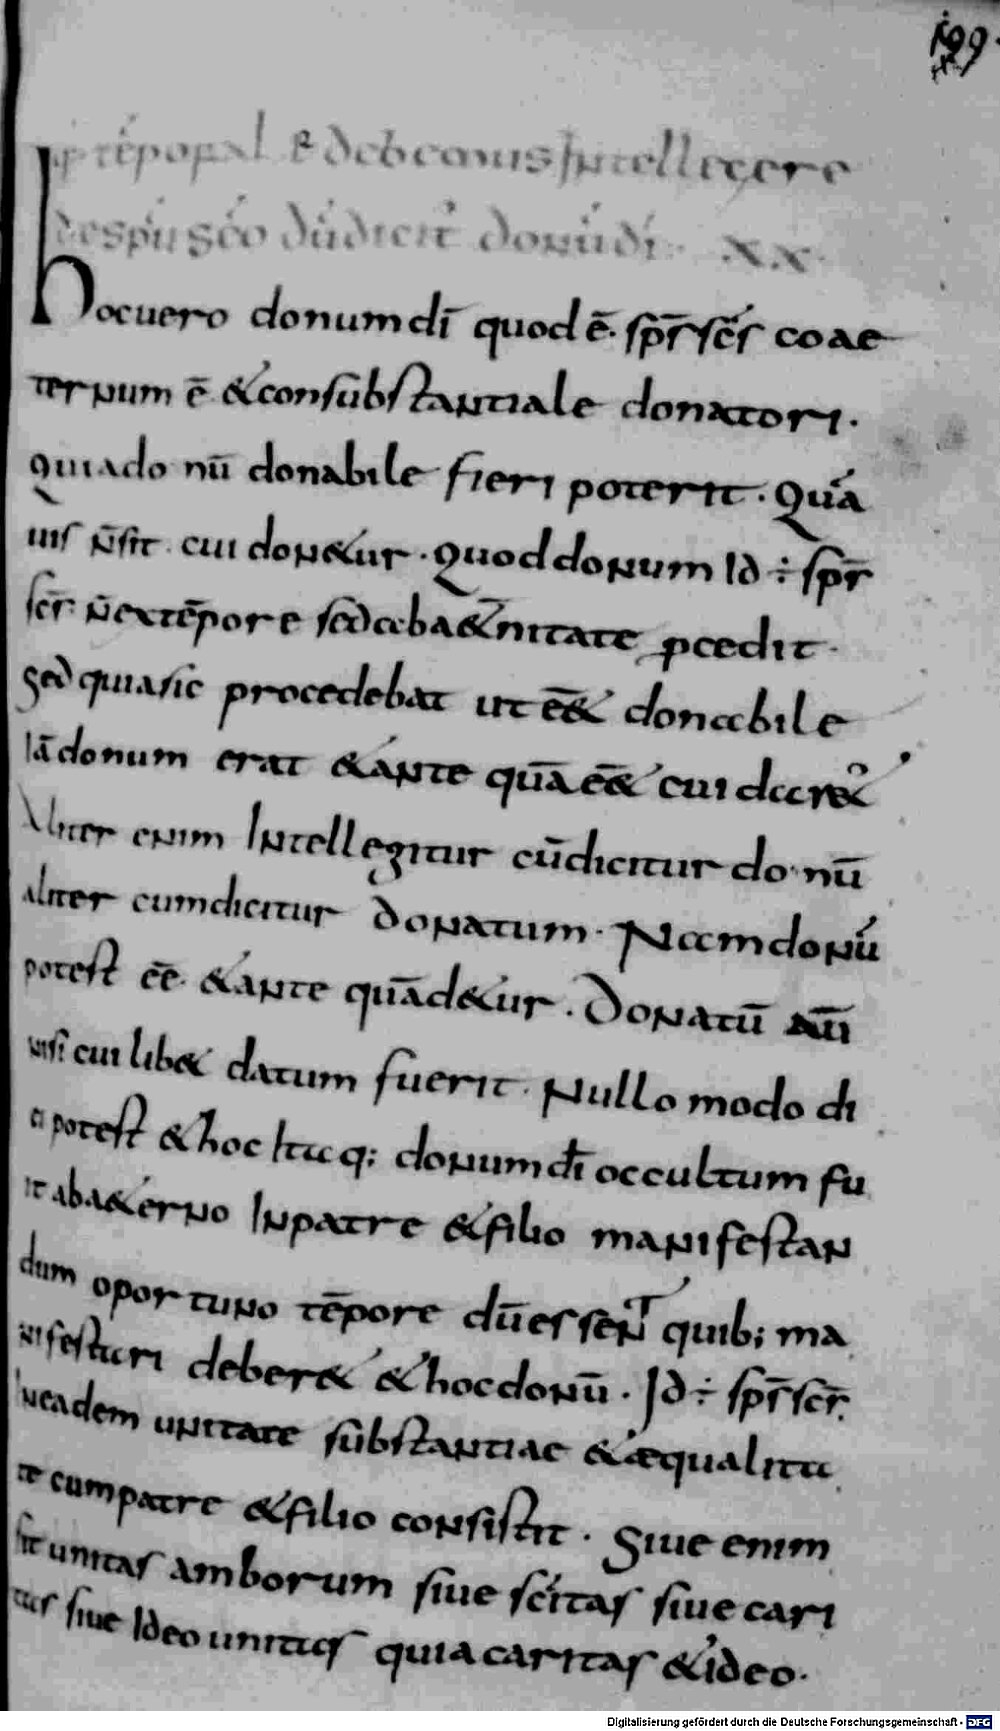 199.
tēporal & debeamus Intellegere
despū sc̄o dū dicit̄ donū dī. XX.
Hocuero donum dī quod ē. sp̄s sc̄s coae
ternum ē & consubstantiale donatori.
quia do nū donabile fieri poterit. Quā
uis n̄ sit cui don&ur. quod donum Id ÷ sp̄s
sc̄s n̄ extēpore sed aba&̄nitate pcedit.
sed quia sic procedebat ut eē& donabile
Iā donum erat & ante quā eē& cui dar&
Aliter enim Intellegitur cū dicitur do nū
aliter cum dicitur donatum. Nam donū
potest eē. & ante quā d&ur. Donatū aū
nisi cui lib& datum fuerit. Nullo modo di
ci potest & hoc Itaq; donum dī occultum fu
it aba&erno In patre & filio manifestan
dum oportuno tēpore dū essent quib; ma
nifestari deber& & hoc donū. Id ÷ sp̄s sc̄s.
In eadem unitate substantiae & æqualita
te cum patre & filio consistit. Siue enim
sit unitas amborum siue sc̄itas siue cari
tas siue Ideo unitas quia caritas & ideo.
Digitalisierung gefördert durch die Deutsche Forschungsgemeinschaft - DFG